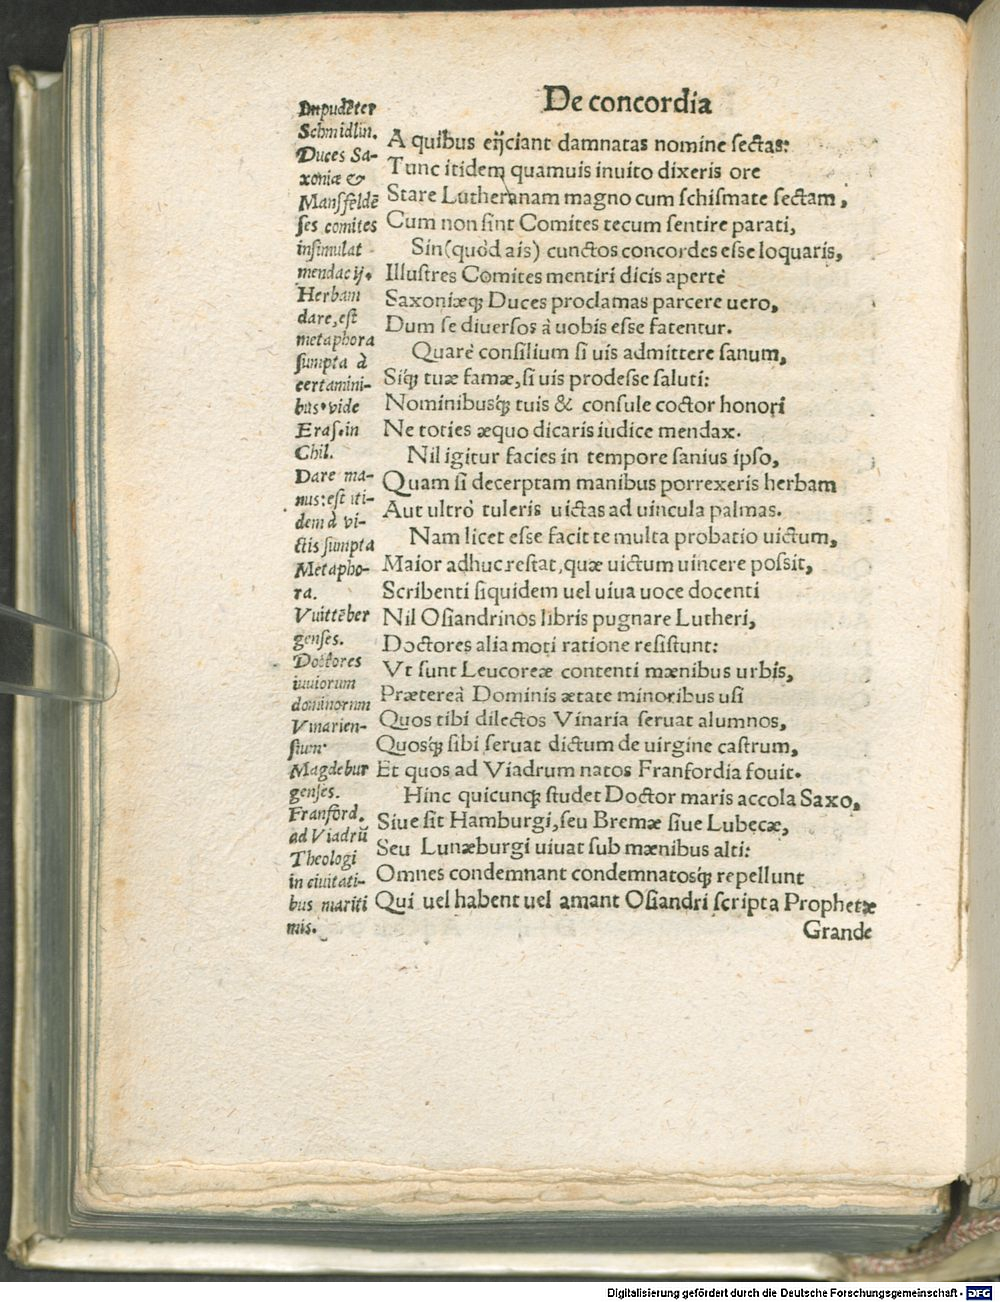 De concordia
Impudēter
Schmidlin.
Duces Sa-
xoniæ &
Mansfeldē
ses comites
insimulat
mendacij.
Herbam
dare, est
metaphora
sumpta à
certamini-
bus. vide
Eras. in
Chil.
Dare ma-
nus: est iti-
dem à vi-
ctis sumpta
Metapho-
ra.
Vuittēber
genses.
Doctores
iuniorum
dominorum
Vinarien-
sium.
Magdebur
genses.
Franford.
ad Viadrū
Theologi
in ciuitati-
bus mariti
mis.
A quibus eijciant damnatas nomine sectas:
Tunc itidem quamuis inuito dixeris ore
Stare Lutheranam magno cum schismate sectam,
Cum non sint Comites tecum sentire parati,
Sin (quòd ais) cunctos concordes esse loquaris,
Illustres Comites mentiri dicis apertè
Saxoniæq; Duces proclamas parcere uero,
Dum se diuersos à uobis esse fatentur.
Quarè consilium si uis admittere sanum,
Siq; tuæ famæ, si uis prodesse saluti:
Nominibusq; tuis & consule coctor honori
Ne toties æquo dicaris iudice mendax.
Nil igitur facies in tempore sanius ipso,
Quam si decerptam manibus porrexeris herbam
Aut ultrò tuleris uictas ad uincula palmas.
Nam licet esse facit te multa probatio uictum,
Maior adhuc restat, quæ uictum uincere possit,
Scribenti siquidem uel uiua uoce docenti
Nil Osiandrinos libris pugnare Lutheri,
Doctores alia moti ratione resistunt:
Vt sunt Leucoreæ contenti mænibus urbis,
Prætereà Dominis ætate minoribus usi
Quos tibi dilectos Vinaria seruat alumnos,
Quosq; sibi seruat dictum de uirgine castrum,
Et quos ad Viadrum natos Franfordia fouit.
Hinc quicunq; studet Doctor maris accola Saxo,
Siue sit Hamburgi, seu Bremæ siue Lubecæ,
Seu Lunæburgi uiuat sub mænibus alti:
Omnes condemnant condemnatosq; repellunt
Qui uel habent uel amant Osiandri scripta Prophetæ
Grande
Digitalisierung gefördert durch die Deutsche Forschungsgemeinschaft - DFG